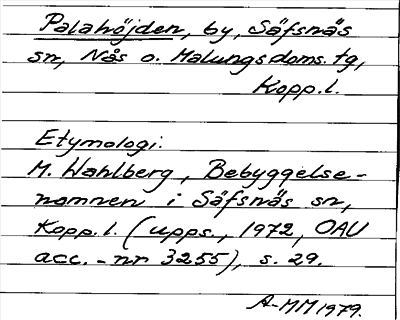 Palahöjden, by, Säfsnäs
sn, Nås o. Malungs doms. tg,
Kopp. l.
Etymologi:
M. Wahlberg, Bebyggelse-
namnen i Säfsnäs sn,
Kopp. l. (upps., 1972, OAU
acc. - nr 3255), s. 29.
A-MM 1979.